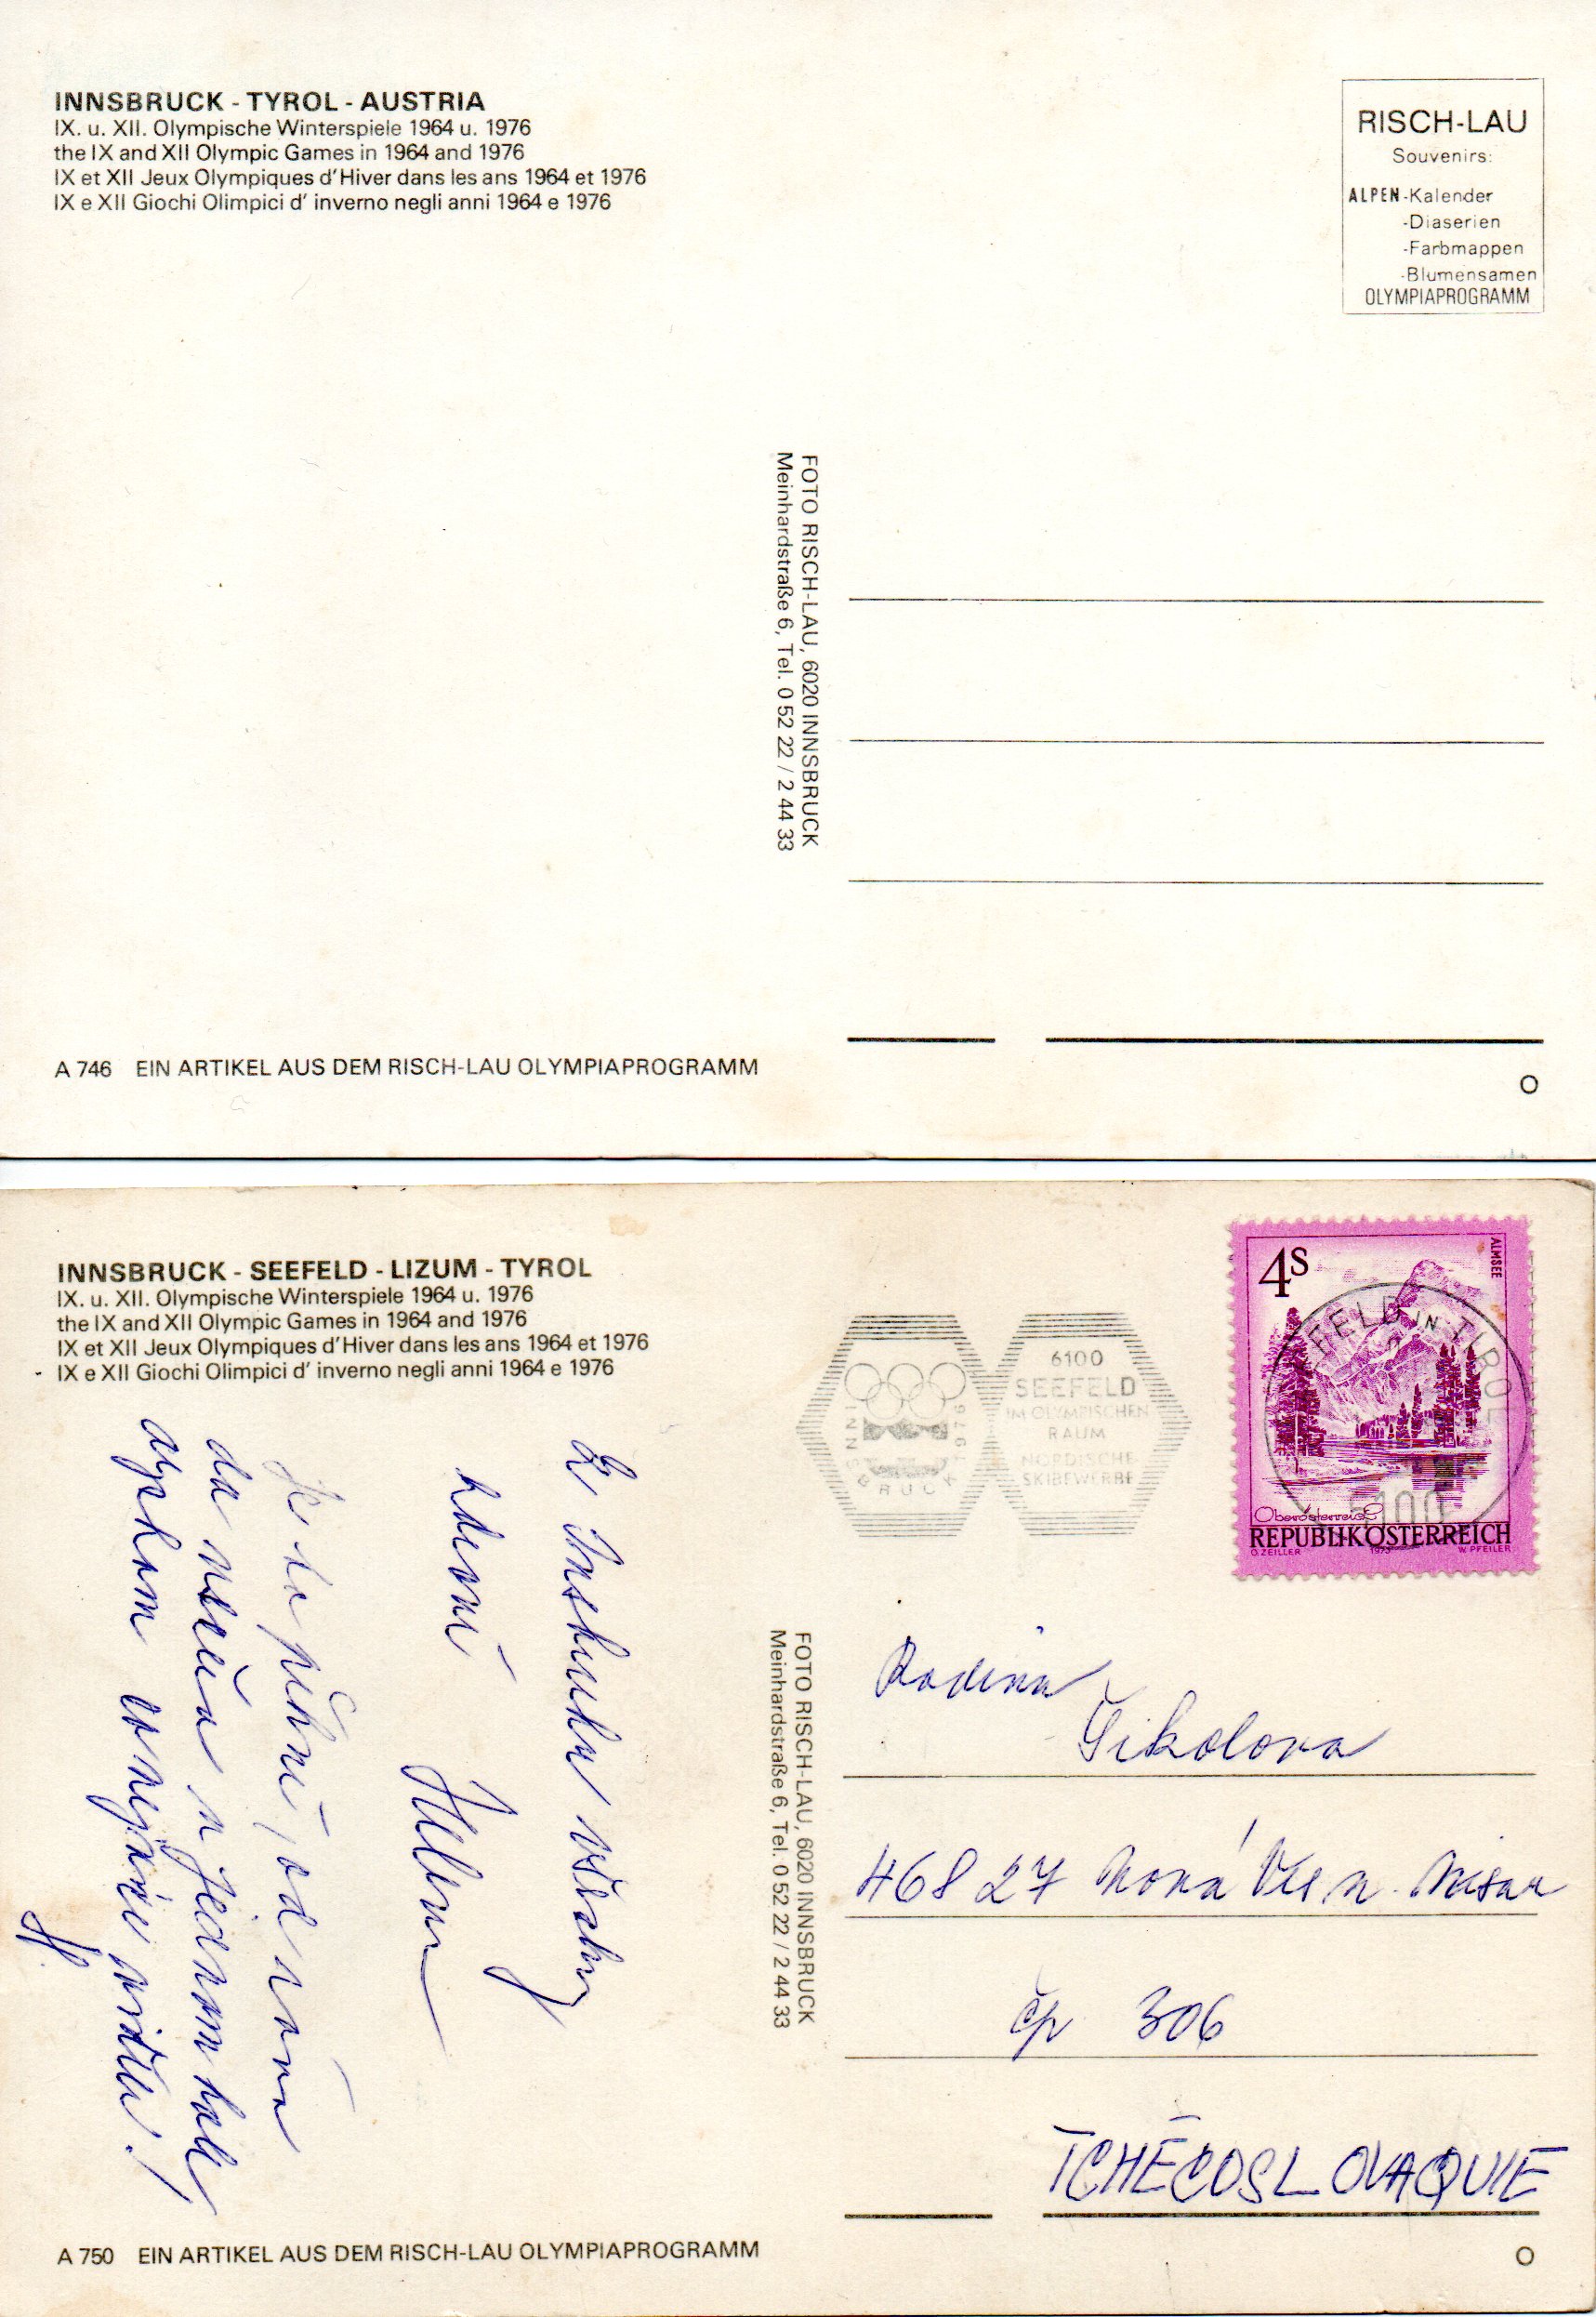 INNSBRUCK - TYROL - AUSTRIA
IX. u. XII. Olympische Winterspiele 1964 u. 1976
the IX and XII Olympic Games in 1964 and 1976
IX et XII Jeux Olympiques d'Hiver dans les ans 1964 et 1976
IX e XII Giochi Olimpici d' inverno negli anni 1964 e 1976
RISCH-LAU
Souvenirs:
ALPEN-Kalender
-Diaserien
-Farbmappen
-Blumensamen
OLYMPIAPROGRAMM
FOTO RISCH-LAU, 6020 INNSBRUCK
Meinhardstraße 6, Tel. 0 52 22 / 2 44 33
A 746 EIN ARTIKEL AUS DEM RISCH-LAU OLYMPIAPROGRAMM
O
INNSBRUCK - SEEFELD - LIZUM - TYROL
IX. u. XII. Olympische Winterspiele 1964 u. 1976
the IX and XII Olympic Games in 1964 and 1976
IX et XII Jeux Olympiques d'Hiver dans les ans 1964 et 1976
IX e XII Giochi Olimpici d' inverno negli anni 1964 e 1976
INNSBRUCK 1976
6100
SEEFELD
IM OLYMPISCHEN
RAUM
NORDISCHE
SKIBEWERBE
4S
ALMSEE
FELD IN TIROL
6100
Oberösterreich
REPUBLIK ÖSTERREICH
O. ZEILLER 1973 W. PFEILER
Z Insbruku všechny
zdraví
Helena
Je to pěkné, od rána
do večera
abychom co nejvíce viděli!
H.
FOTO RISCH-LAU, 6020 INNSBRUCK
Meinhardstraße 6, Tel. 0 52 22 / 2 44 33
Rodina
Čikolova
468 27 Nová Ves n. Nisou
čp 306
TCHÉCOSLOVAQUIE
A 750 EIN ARTIKEL AUS DEM RISCH-LAU OLYMPIAPROGRAMM
O